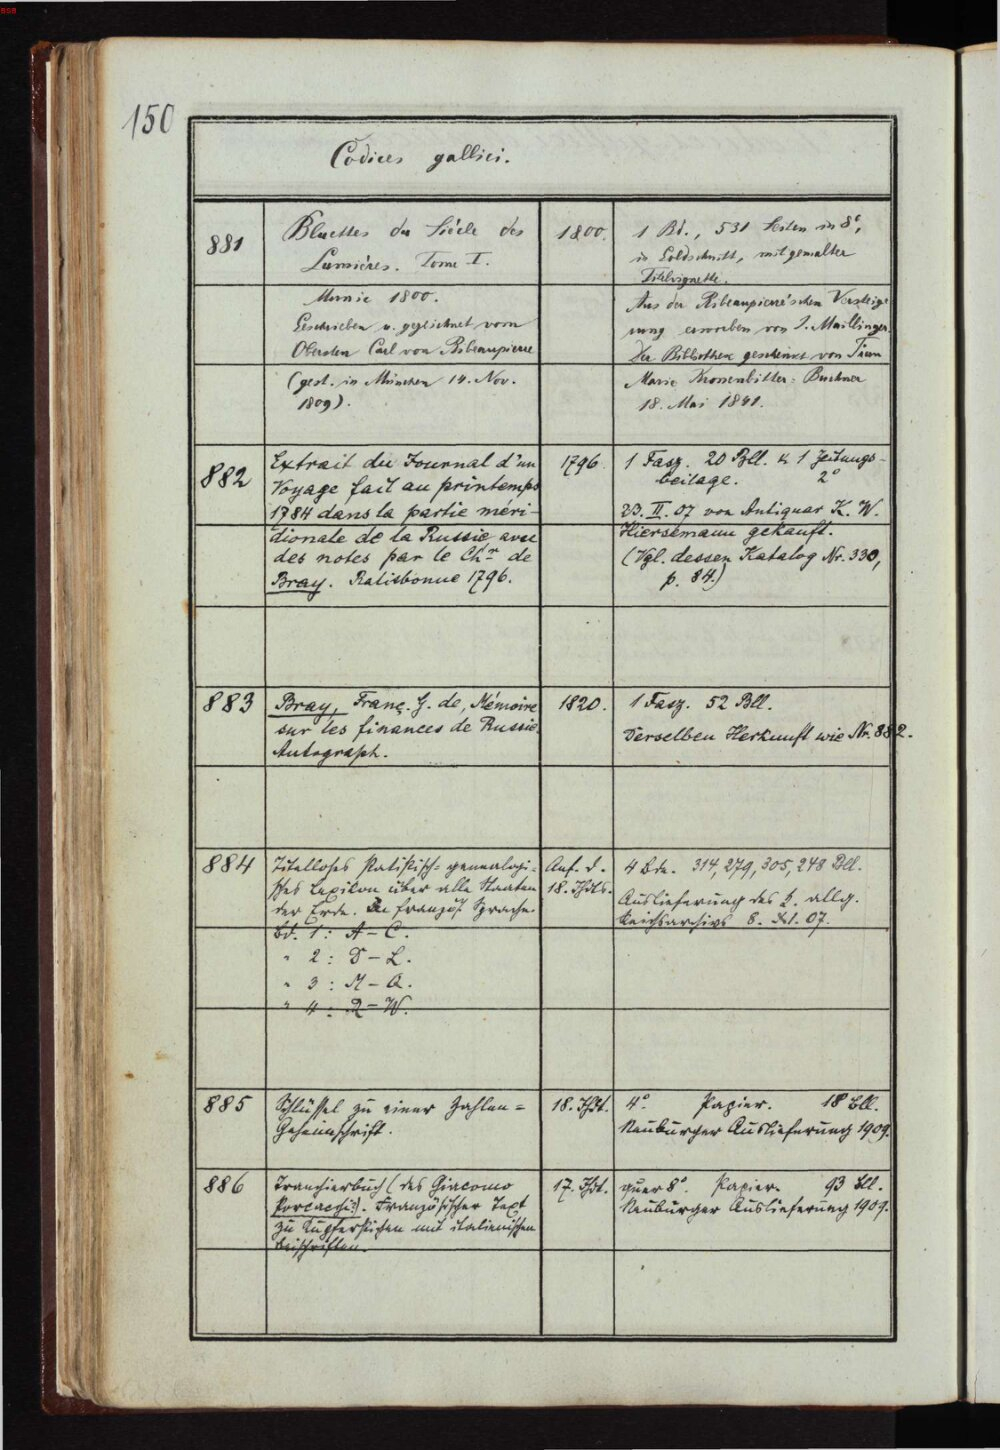 BSB
150
Codices gallici.
881
Bluettes du Siécle des
Lumiéres. Tome I.
Munic 1800.
Geschrieben u. gezeichnet vom
Obersten Carl von Ribeaupierre
(gest. in München 14. Nov.
1809).
1800.
1 Bd., 531 Seiten in 8°,
in Goldschnitt, mit gemalter
Titelvignette.
Aus der Ribeaupierre'schen Versteige
rung erworben von J. Maillinger.
Der Bibliothek geschenkt von Frau
Marie Kronenbitter-Buchner
18. Mai 1841.
882
Extrait du Journal d'un
Voyage fait au printemps
1784 dans la partie méri-
dionale de la Russie avec
des notes par le Chr de
Bray. Ratisbonne 1796.
1796.
1 Fasz. 20 Bll. & 1 Zeitungs-
beilage. 2°
23. II. 07 von Antiquar K. W.
Hiersemann gekauft.
(Vgl. dessen Katalog Nr. 330,
p. 84.)
883
Bray, Franç. G. de, Mémoire
sur les finances de Russie.
Autograph.
1820.
1 Fasz. 52 Bll.
Derselben Herkunft wie Nr. 882.
884
Titelloses statistisch-genealogi-
sches Lexikon über alle Staaten
der Erde. In französ. Sprache.
Bd. 1: A-C.
" 2: D-L.
" 3: M-Q.
" 4: R-W.
Anf. d.
18. Jhdts.
4 Bde. 314, 279, 305, 248 Bll.
Auslieferung des k. allg.
Reichsarchivs 8. XI. 07.
885
Schlüssel zu einer Zahlen-
Geheimschrift.
18. Jhdt.
4°. Papier. 18 Bll.
Neuburger Auslieferung 1909.
886
Tranchierbuch (des Giacomo
Porcacchi). Französischer Text
zu Kupferstichen mit italienischen
Beischriften.
17. Jhdt.
quer 8°. Papier. 93 Bll.
Neuburger Auslieferung 1909.